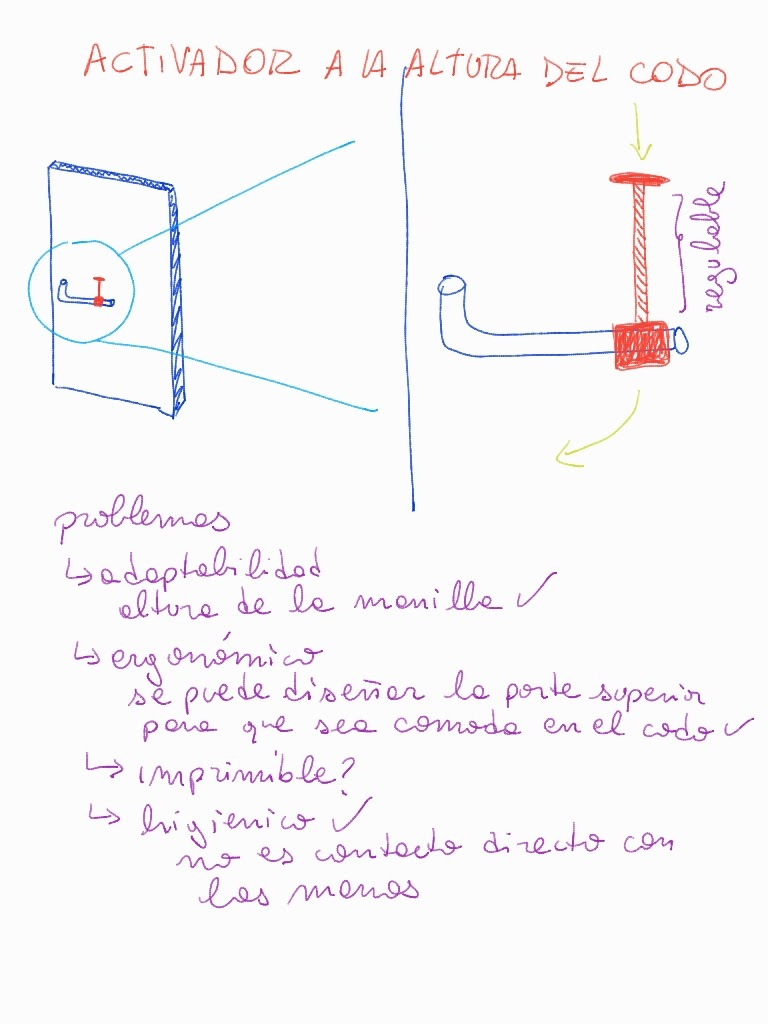 ACTIVADOR A LA ALTURA DEL CODO
regulable
problemas
↳ adaptabilidad
altura de la manilla ✓
↳ ergonómico
se puede diseñar la parte superior
para que sea comoda en el codo ✓
↳ imprimible?
↳ higienico ✓
no es contacto directo con
las manos